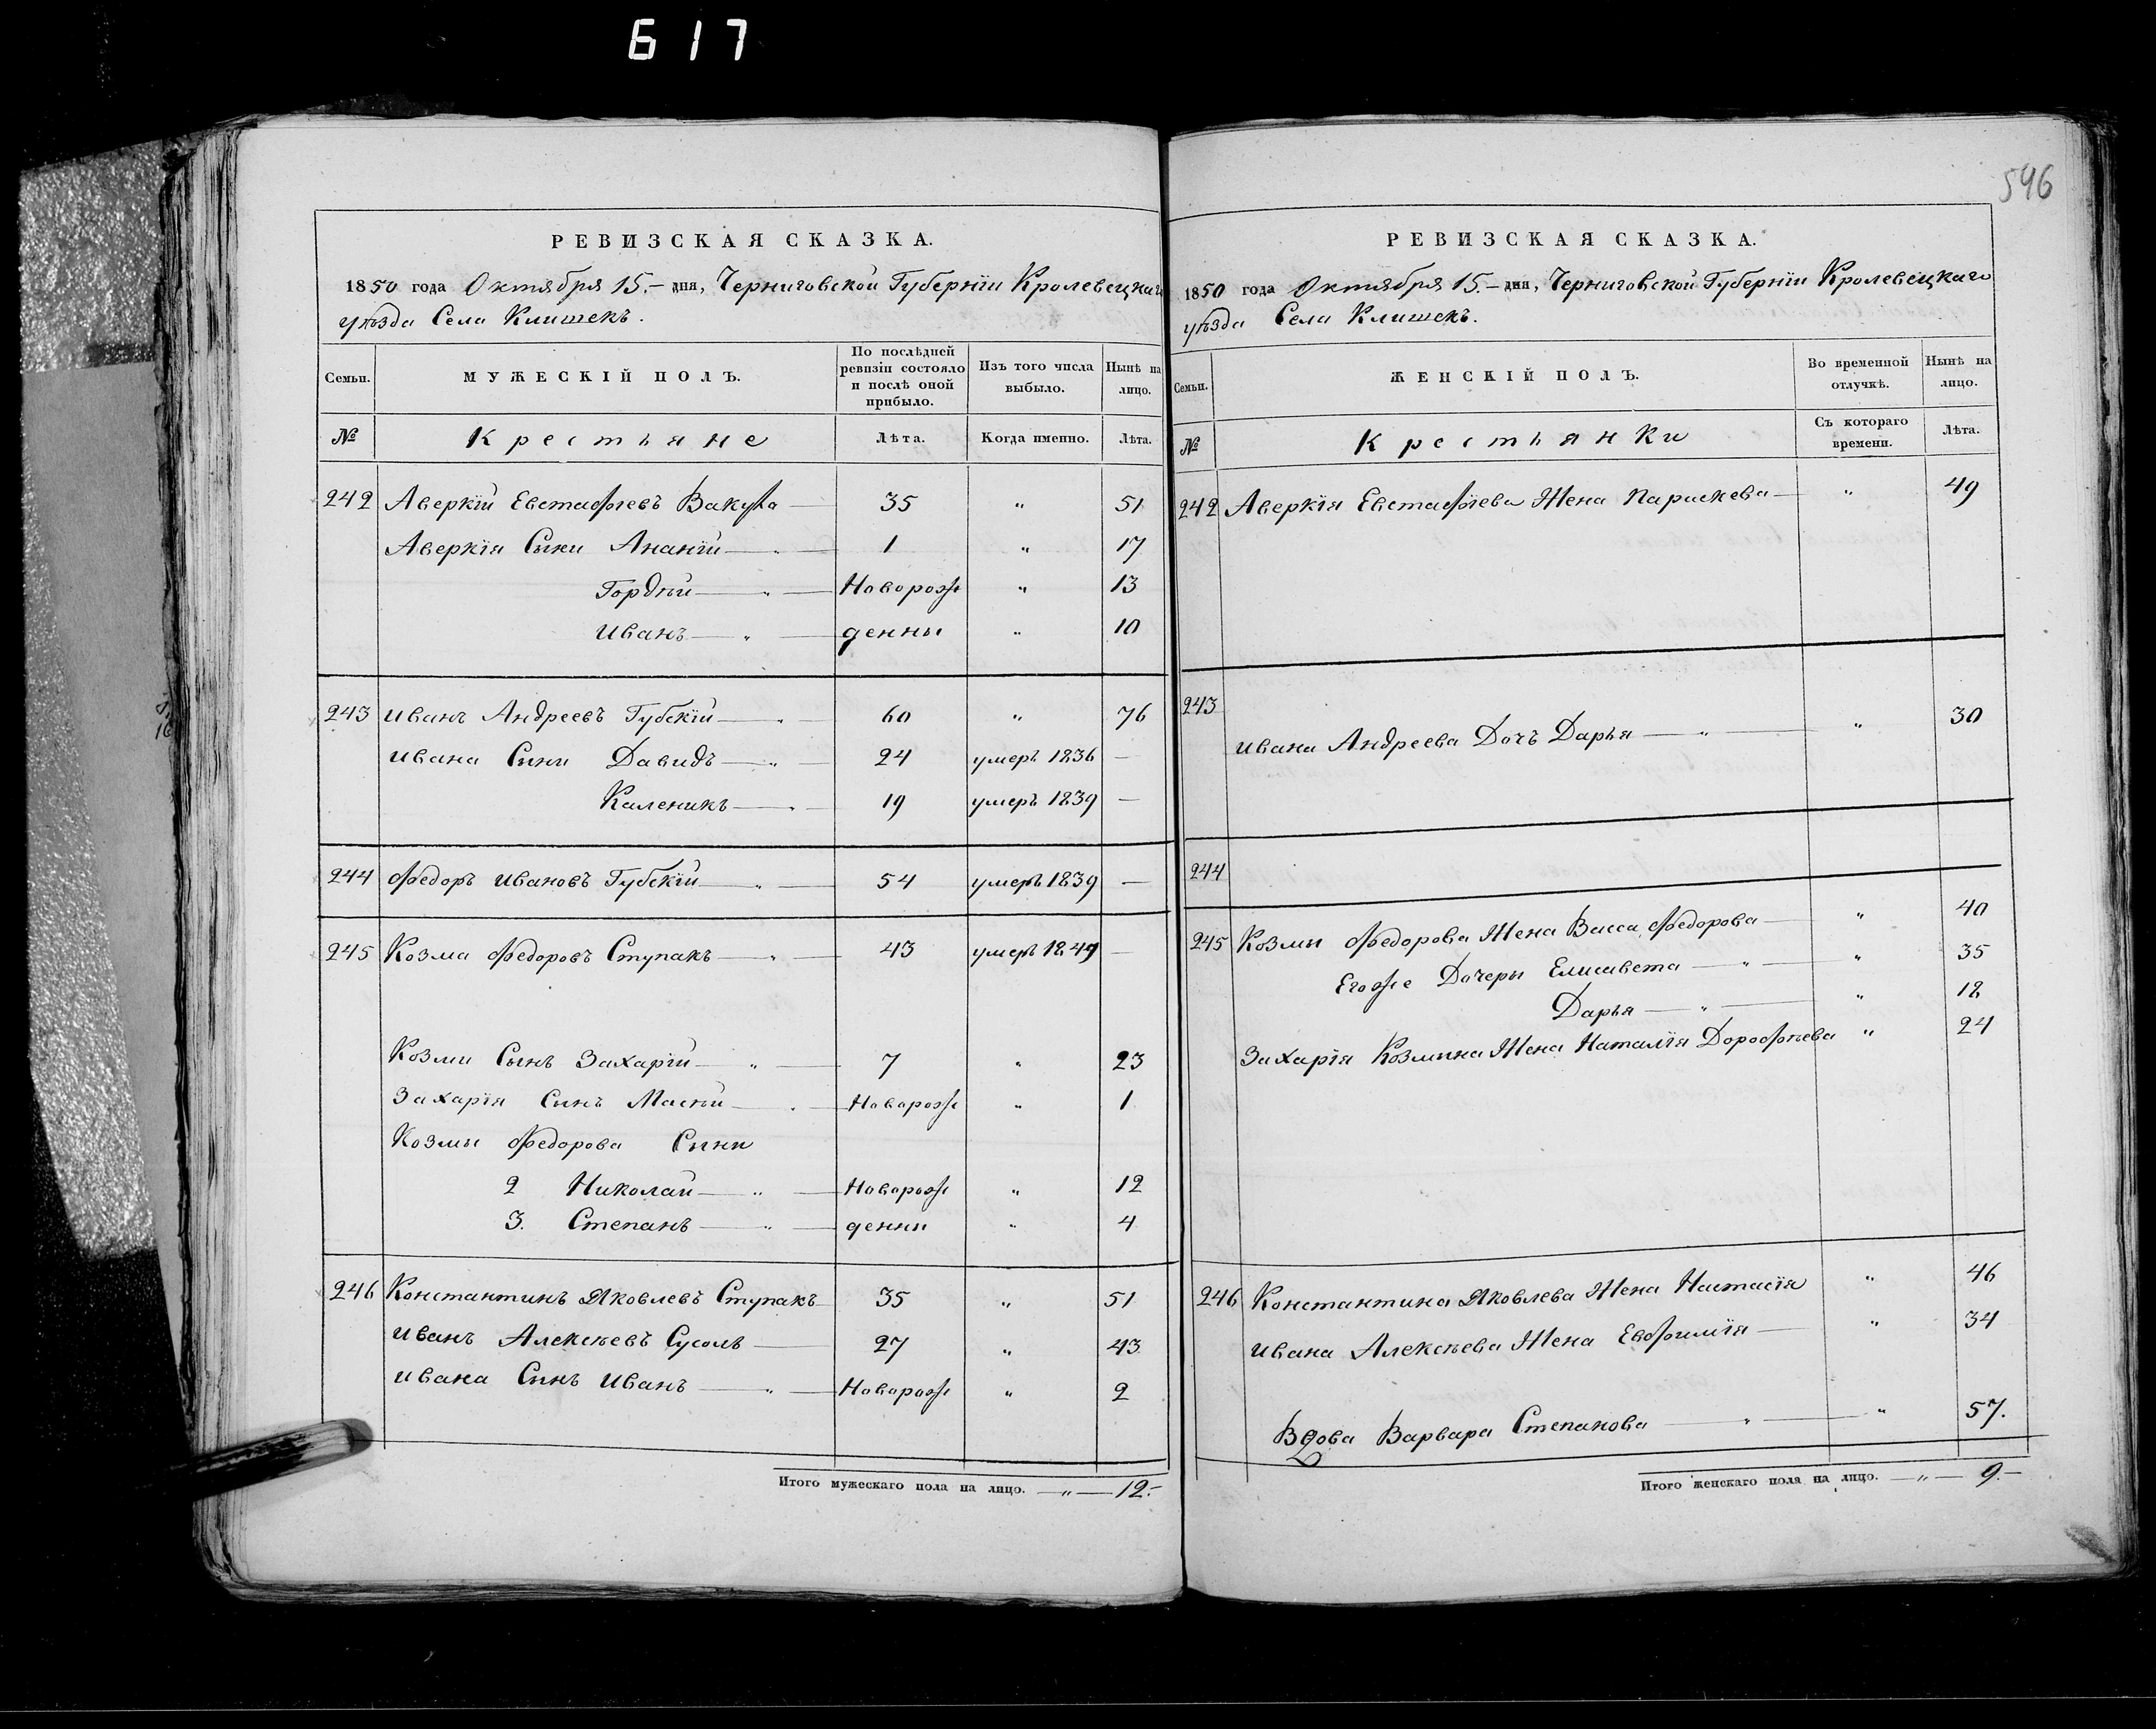 617
596
РЕВИЗСКАЯ СКАЗКА.
1850 года Октября 15.– дня, Черниговской Губерніи Кролевецкаго
уѣзда Села Клишекъ.
Семьи. МУЖЕСКІЙ ПОЛЪ. По послѣдней ревизіи состояло и послѣ оной прибыло. Изъ того числа выбыло. Нынѣ на лицо.
№ Крестьяне Лѣта. Когда именно. Лѣта.
242 Аверкій Евстафіевъ Вакула 35 " 51
Аверкія Сыны Ананій " 1 " 17
Гордѣй " Новорож 13
Иванъ " денны " 10
243 Иванъ Андреевъ Губскій " 60 " 76
Ивана Сыны Давидъ " 24 умеръ 1836 —
Каленикъ " 19 умеръ 1839 —
244 Федоръ Ивановъ Губскій " 54 умеръ 1839 —
245 Козма Федоровъ Ступакъ " 43 умеръ 1849 —
Козмы Сынъ Захарій " 7 " 23
Захарія Сынъ " Новорож " 1
Козмы Федорова Сыны
2 Николай " Новорож " 12
3. Степанъ " денны " 4
246 Константинъ Яковлевъ Ступакъ 35 " 51
Иванъ Алексѣевъ Сусоль 27 " 43
Ивана Сынъ Иванъ " Новорож " 2
Итого мужескаго пола на лицо. — " — 12.–
РЕВИЗСКАЯ СКАЗКА.
1850 года Октября 15.– дня, Черниговской Губерніи Кролевецкаго
уѣзда Села Клишекъ.
Семьи. ЖЕНСКІЙ ПОЛЪ. Во временной отлучкѣ. Нынѣ на лицо.
№ Крестьянки Съ котораго времени. Лѣта.
242 Аверкія Евстафіева Жена Параскева " 49
243
Ивана Андреева Дочь Дарья " " 30
244
245 Козмы Федорова Жена Васса Федорова " 40
Егоже Дочеры Елисавета " " 35
Дарья " " 18
Захарія Козмина Жена Наталія Дорофѣева " 24
246 Константина Яковлева Жена Настасія " 46
Ивана Алексѣева Жена Евфимія " 34
Вдова Варвара Степанова " " 57.
Итого женскаго пола на лицо. — " — 9.–